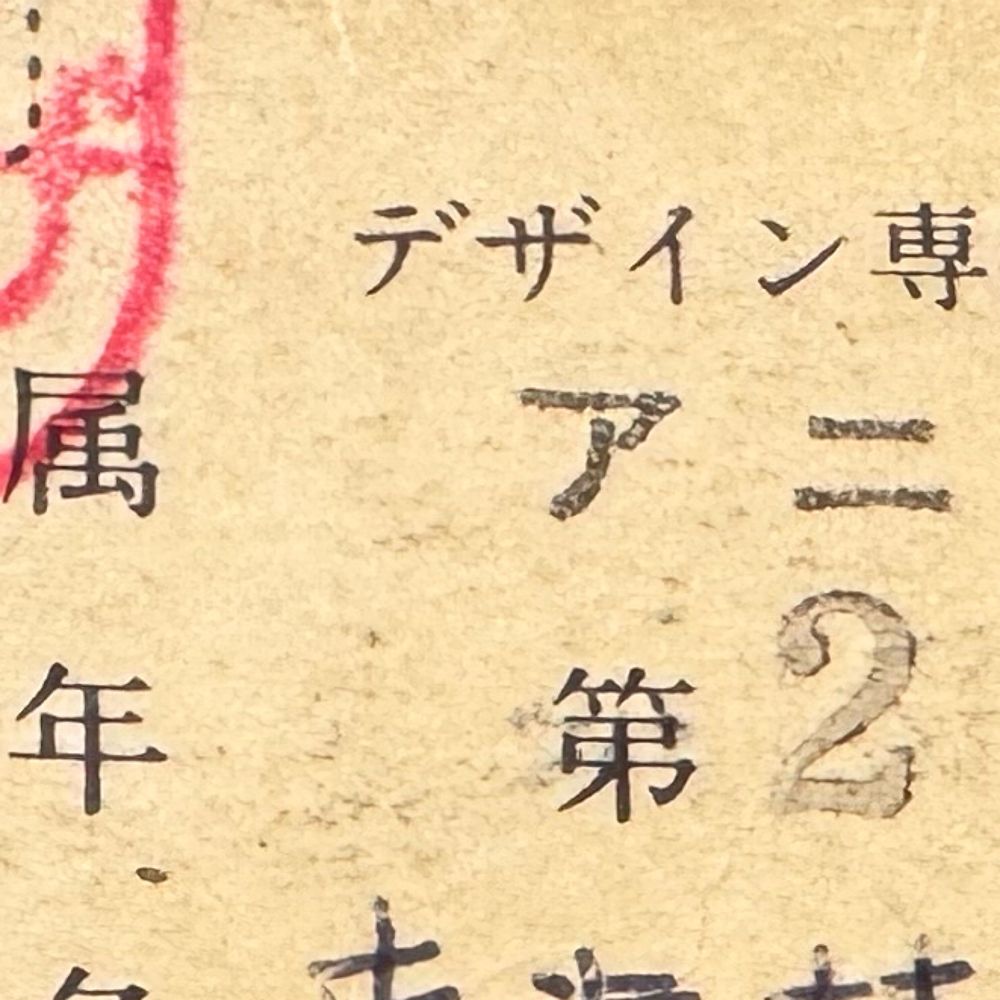 デザイン専
属 アニ
年 第2